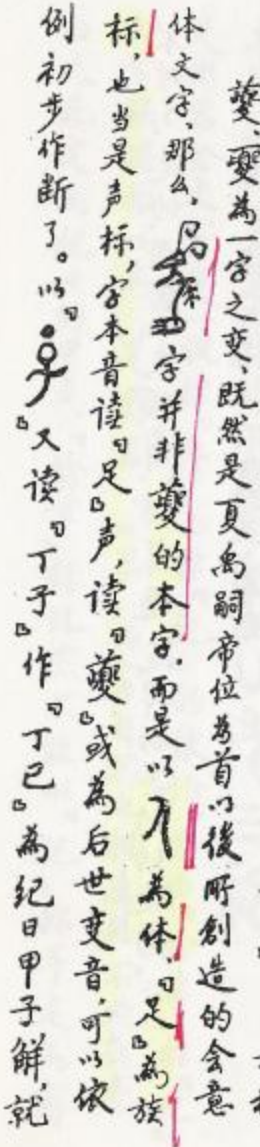 夔、夒為一字之变、既然是夏禹嗣帝位為首以後所創造的会意
体文字、那么，字并非夔的本字，而是以 为体，『足』為族
标，也当是声标，字本音读『足』声，读『夔』或為后世变音，可以依
例初步作断了。以『 』又读『丁子』作『丁巳』為纪日甲子解，就